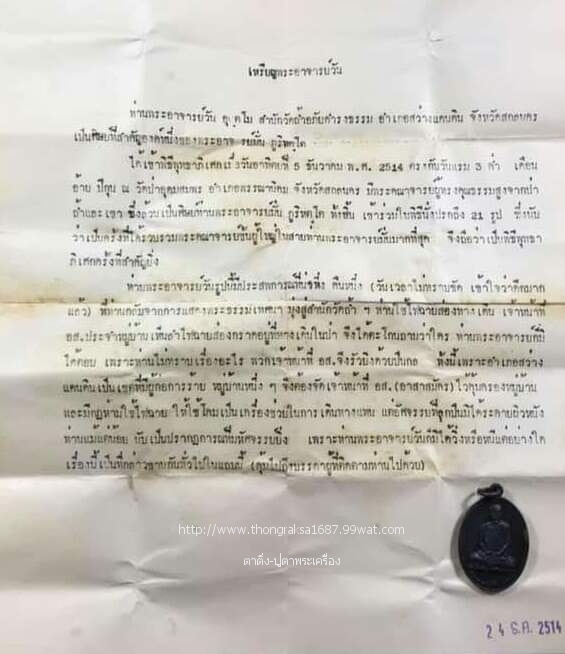 เหรียญพระอาจารย์วัน
ท่านพระอาจารย์วัน อุตฺตโม สำนักวัดถ้ำอภัยดำรงธรรม อำเภอสว่างแดนดิน จังหวัดสกลนคร
เป็นศิษย์ที่สำคัญองค์หนึ่งของพระอาจารย์มั่น ภูริทตฺโต
ได้เข้าพิธีพุทธาภิเศกเมื่อวันอาทิตย์ที่ 5 ธันวาคม พ.ศ. 2514 ตรงกับวันแรม 3 ค่ำ เดือน
อ้าย ปีกุน ณ วัดป่าอุดมสมพร อำเภอพรรณานิคม จังหวัดสกลนคร มีพระคณาจารย์ผู้ทรงคุณธรรมสูงจากป่า
ถ้ำและเขา ซึ่งล้วนเป็นศิษย์ท่านพระอาจารย์มั่น ภูริทตฺโต ทั้งสิ้น เข้าร่วมในพิธีนั่งปรกถึง 21 รูป ซึ่งนับ
ว่าเป็นครั้งที่ได้รวบรวมพระคณาจารย์ชั้นผู้ใหญ่ในสายท่านพระอาจารย์มั่นมากที่สุด จึงถือว่าเป็นพิธีพุทธา
ภิเศกครั้งที่สำคัญยิ่ง
ท่านพระอาจารย์วันรูปนี้มีประสพการณ์ที่น่าทึ่ง คืนหนึ่ง (วันเวลาไม่ทราบชัด เข้าใจว่าดึกมาก
แล้ว) ที่ท่านกลับจากการแสดงพระธรรมเทศนา มุ่งสู่สำนักวัดถ้ำ ฯ ท่านใช้ไฟฉายส่องทางเดิน เจ้าหน้าที่
อส.ประจำหมู่บ้านเห็นลำไฟฉายส่องกราดอยู่ที่ทางเดินในป่า จึงได้ตะโกนถามว่าใคร ท่านพระอาจารย์ก็มิ
ได้ตอบ เพราะท่านไม่ทราบเรื่องอะไร พวกเจ้าหน้าที่ อส.จึงรัวยิงด้วยปืนกล ทั้งนี้เพราะอำเภอสว่าง
แดนดินเป็นเขตที่มีผู้ก่อการร้าย หมู่บ้านหนึ่ง ๆ จึงต้องจัดเจ้าหน้าที่ อส. (อาสาสมัคร) ไว้คุ้มครองหมู่บ้าน
และมีกฎห้ามใช้ไฟฉาย ให้ใช้โคมเป็นเครื่องช่วยในการเดินทางแทน แต่อัศจรรย์ที่ลูกปืนมิได้ระคายผิวหนัง
ท่านแม้แต่น้อย นับเป็นปรากฏการณ์อันมหัศจรรย์ยิ่ง เพราะท่านพระอาจารย์วันก็มิได้วิ่งหรือหนีแต่อย่างใด
เรื่องนี้เป็นที่กล่าวขานกันทั่วไปในแถบนี้ (คุ้มไปถึงบรรดาผู้ที่ติดตามท่านไปด้วย)
http://www.thongraksa1687.99wat.com
ตาดิ่ง-ปุตาพระเครื่อง
2 4 ธ.ค. 2514